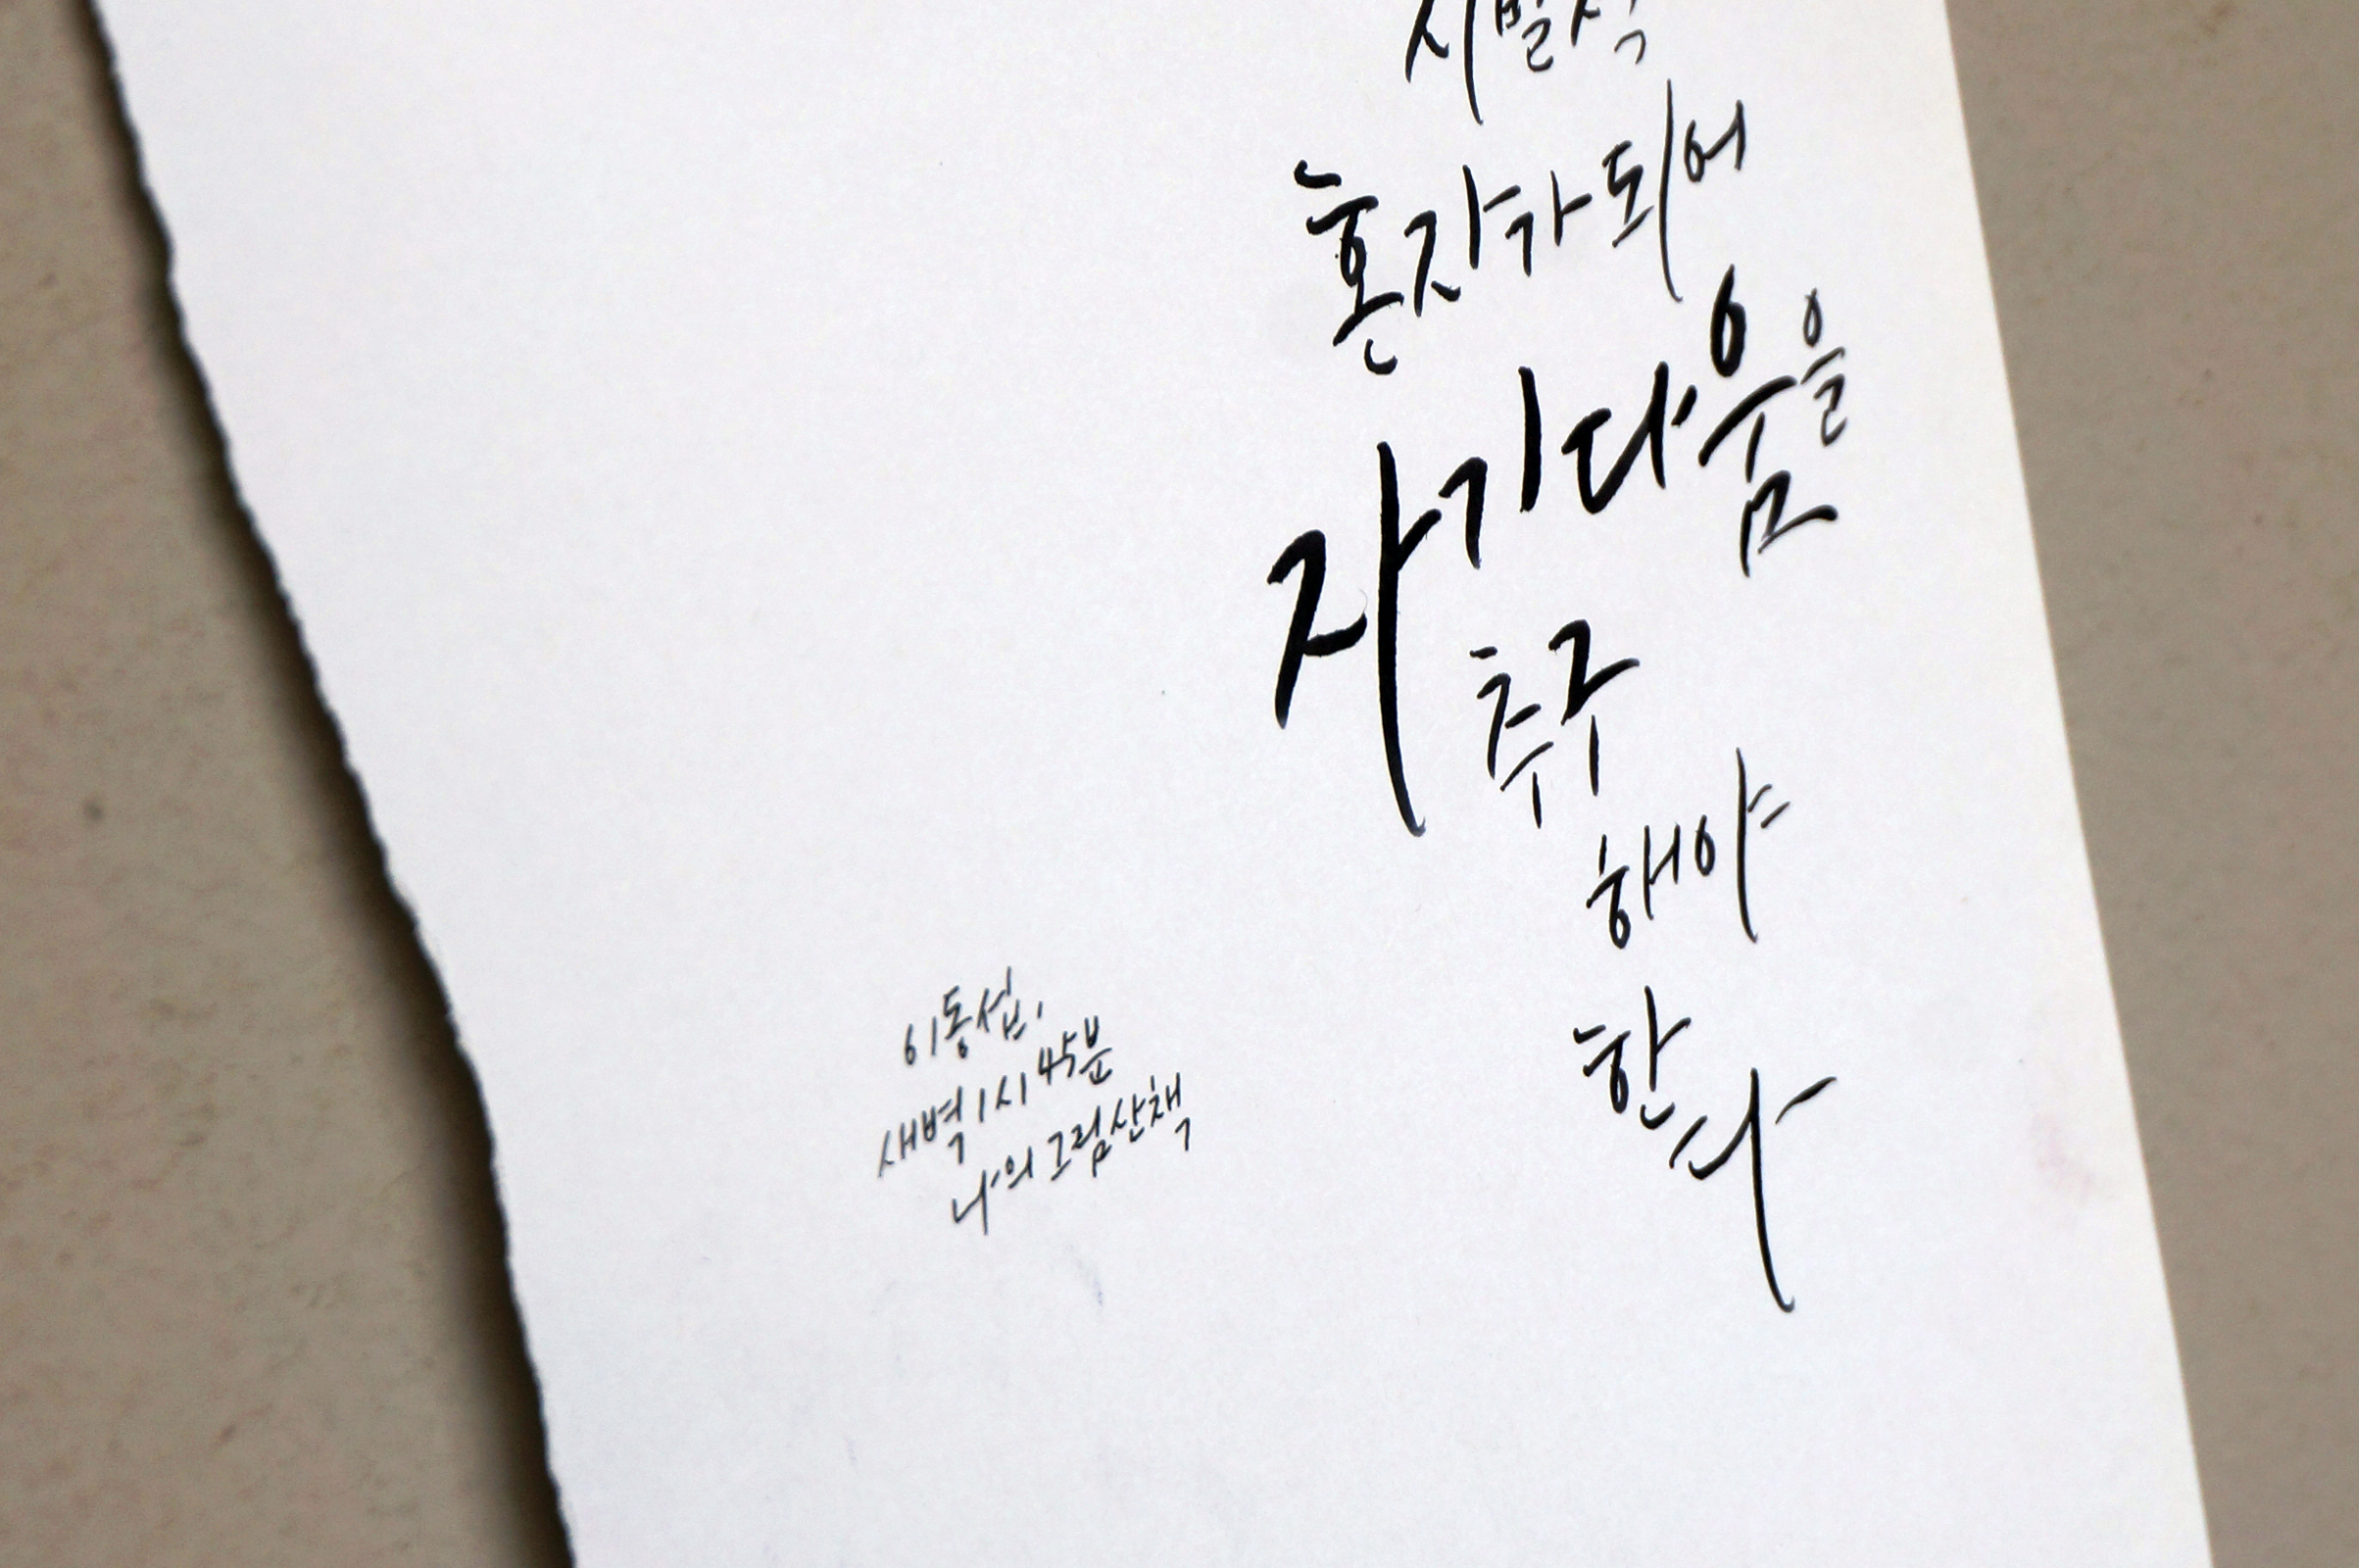 혼자가 되어
자기다움을
추구
해야
한
다
이동섭,
새벽 1시 45분
나의 그림 산책